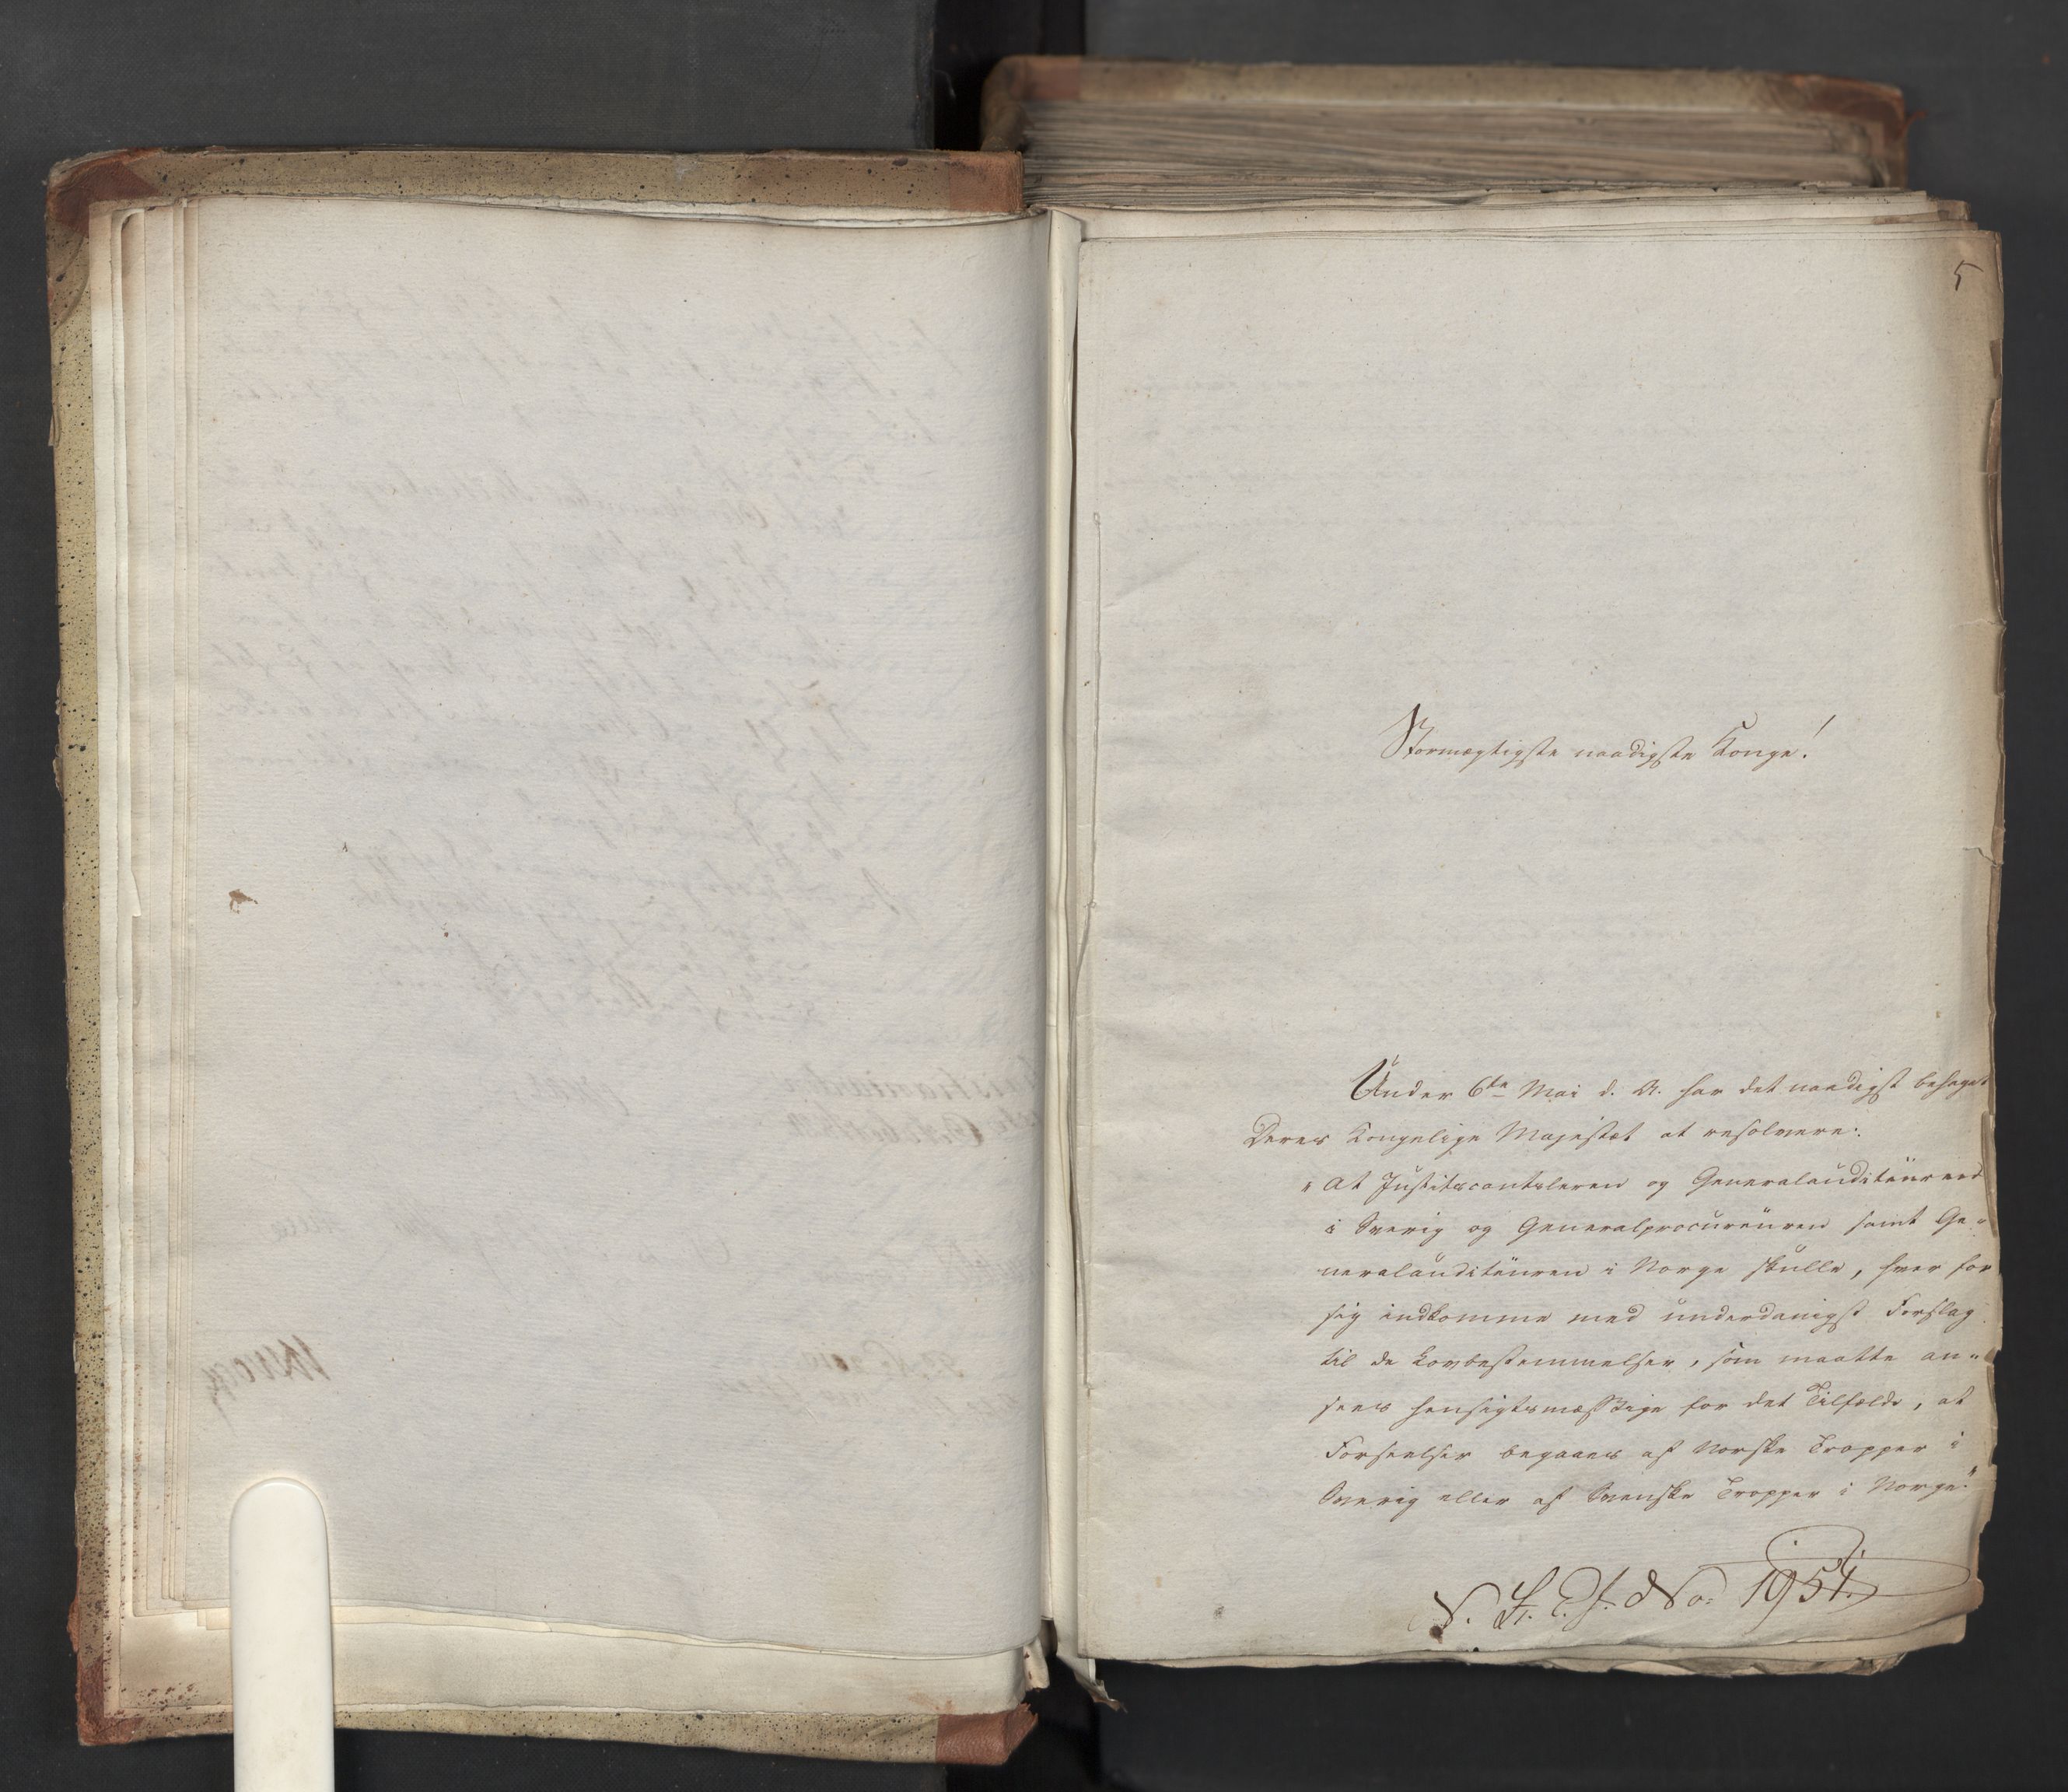 5
Stormægtigste naadigste Konge!
Under 6te Mai d. A. har det naadigst behaget
Deres Kongelige Majestæt at resolvere:
"At Justitscantsleren og Generalauditeuren
i Sverig og Generalprocureuren samt Ge-
neralauditeuren i Norge skulle, hver for
sig indkomme med underdanigst Forslag
til de Lovbestemmelser, som maatte an-
sees hensigtsmæssige for det Tilfælde, at
Forseelser begaaes af Norske Tropper i
Sverig eller af Svenske Tropper i Norge."
No: 1954.